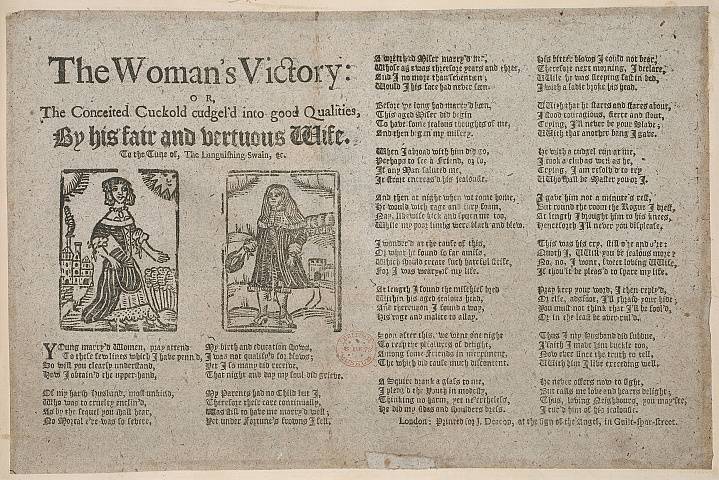 The Woman's Victory:
OR,
The Conceited Cuckold cudgel'd into good Qualities,
By his fair and vertuous Wife.
To the Tune of, The Languishing Swain, &c.
YOung marry'd Women, pray attend
To these few lines which I have penn'd,
So will you clearly understand,
How I obtain'd the upper-hand.
Of my harsh Husband, most unkind,
Who was to cruelty inclin'd,
As by the sequel you shall hear,
No Mortal e're was so severe,
My birth and education shows,
I was not qualify'd for blows;
Yet I so many did receive,
That night and day my soul did grieve.
My Parents had no Child but I,
Therefore their care continually,
Was still to have me marry'd well;
Yet under Fortune's frowns I fell.
A wretched Miser marry'd me,
Whose age was threescore years and three,
And I no more than seventeen;
Would I his face had never seen.
Before we long had marry'd been,
This aged Miser did begin
To have some jealous thoughts of me,
And then began my misery.
When I abroad with him did go,
Perhaps to see a Friend, or so,
If any Man saluted me,
It strait encreas'd his jealousie.
And then at night when we came home,
He would with rage and fury foam,
Nay, likewise kick and spurn me too,
While my poor limbs were black and blew.
I wonder'd at the cause of this,
Or what he found so far amiss,
Which should create such hateful strife,
For I was weary of my life.
At length I found the mischief bred
Within his aged jealous head,
And thereupon I found a way,
His rage and malice to allay.
Soon after this, we went one night
To reap the pleasures of delight,
Among some Friends in merriment,
The which did cause much discontent.
A Squire drank a glass to me,
I pledg'd the Youth in modesty,
Thinking no harm, yet ne'ertheless,
He did my sides and shoulders dress.
His bitter blows I could not bear,
Therefore next morning, I declare,
While he was sleeping fast in bed,
I with a ladle broke his head.
With that he starts and stares about,
I stood couragious, fierce and stout,
Crying, I'll never be your Slave;
With that another bang I gave.
He with a cudgel run at me,
I took a club as well as he,
Crying, I am resolv'd to try
Who shall be Master you or I.
I gave him not a minute's rest,
But round the room the Rogue I drest,
At length I brought him to his knees,
Henceforth I'll never you displease,
This was his cry, still o're and o're:
Quoth I, Will you be jealous more?
No, no, I wont, sweet loving Wife,
If thou'lt be pleas'd to spare my life.
Pray keep your word, I then reply'd,
Or else, adsfoot, I'll thrash your hide;
You must not think that I'll be fool'd,
Or in the least be over-rul'd.
Thus I my Husband did subdue,
I'faith I made him buckle too;
Now ever since the truth to tell,
With him I live exceeding well.
He never offers now to fight,
But calls me love and hearts delight;
Thus, loving Neighbours, you may see,
I cur'd him of his jealousie.
London: Printed for J. Deacon, at the sign of the Angel, in Guilt-spur-street.